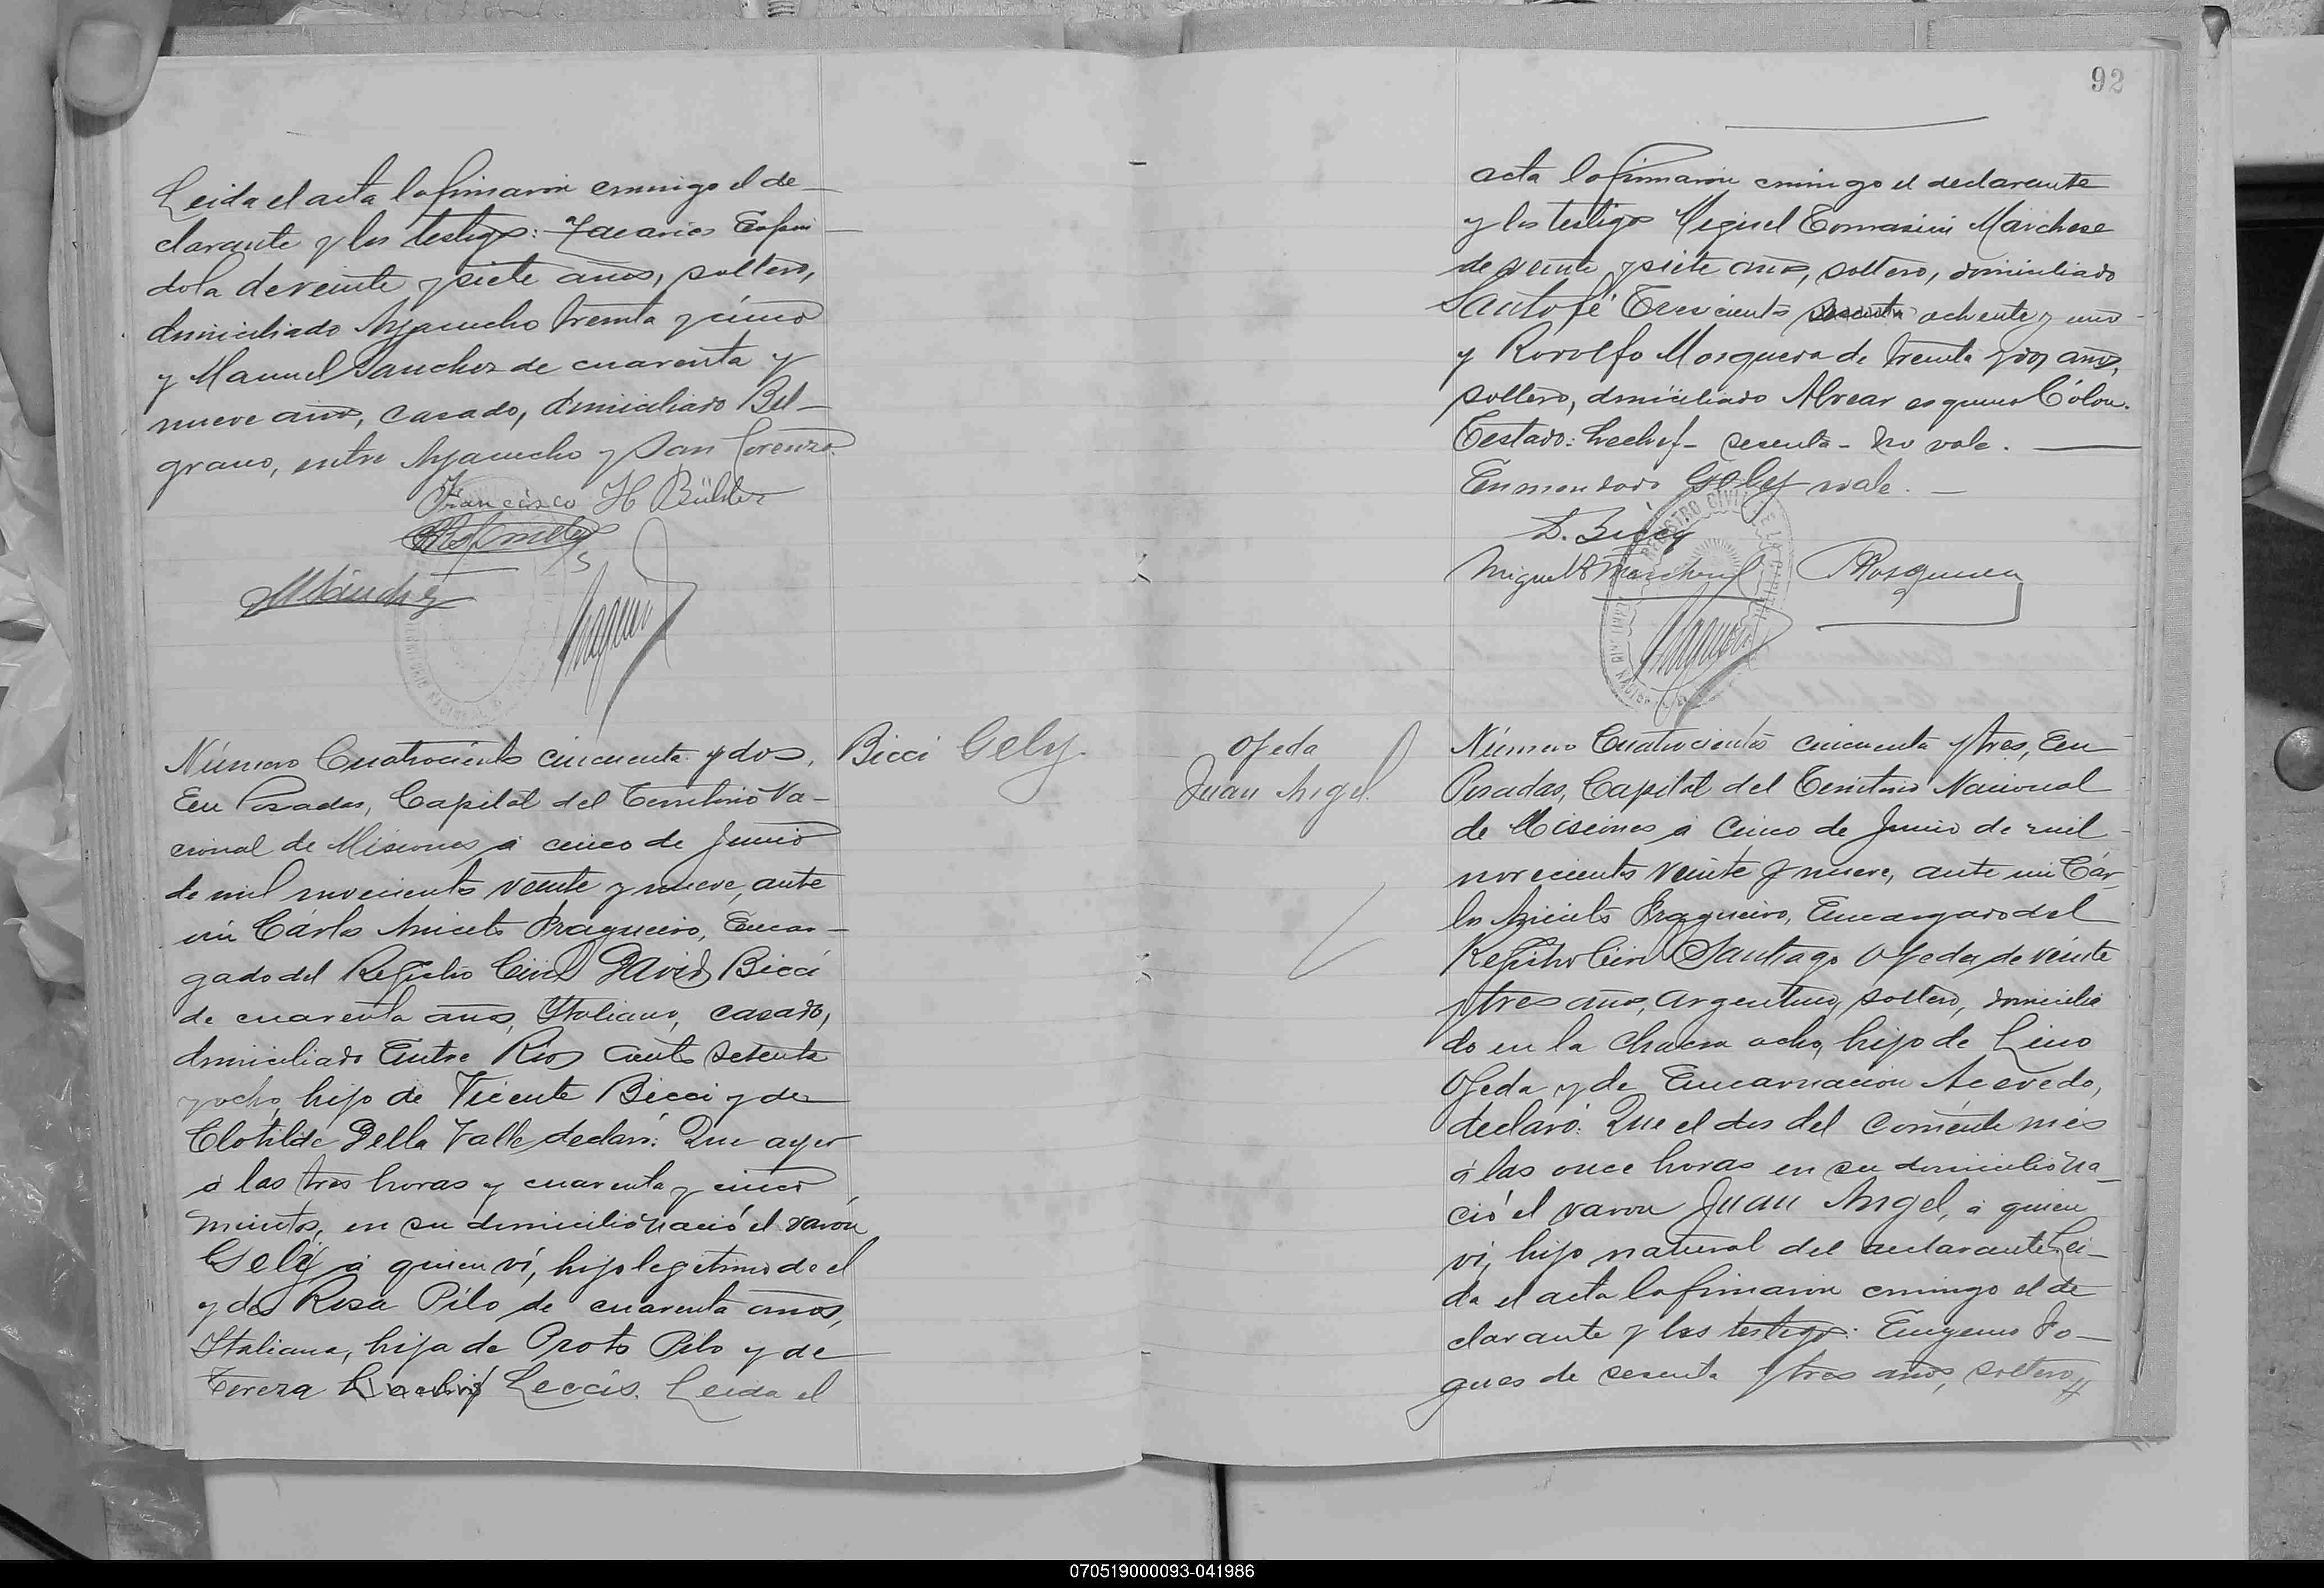 Leida el acta la firmaron conmigo el de-
clarante y los testigos: Zacarias Espin
dola de veinte y siete años, soltero,
domiciliado Ayacucho treinta y cinco
y Manuel Sanchez de cuarenta y
nueve años, casado, domiciliado Bel-
grano, entre Ayacucho y San Lorenzo.
Francisco H Bühler
MSanchez
Número Cuatrocientos cincuenta y dos,
En Posadas, Capital del Territorio Na-
cional de Misiones, á cinco de Junio
de mil novecientos veinte y nueve, ante
mi Cárlos Aniceto Fragueiro, Encar-
gado del Registro Civil David Bicci
de cuarenta años, Italiano, casado,
domiciliado Entre Rios ciento setenta
y ocho, hijo de Vicente Bicci y de
Clotilde Della Valle declaró: Que ayer
á las tres horas y cuarenta y cinco
minutos, en su domicilio nació el varón
Gely á quien ví, hijo legítimo de el
y de Rosa Pilo de cuarenta años,
Italiana, hija de Proto Pilo y de
Tereza Leccis. Leida el
Bicci Gely.
92
acta la firmaron conmigo el declarante
y los testigos Miguel Tomasini Marchese
de veinte y siete años, soltero, domiciliado
Santa fé Trescientos sesenta ochenta y uno
y Rodolfo Mosqueda de treinta y dos años,
soltero, domiciliado Alvear esquina Cólon.
Testado: - sesenta - No vale.
Enmendado Gely vale.
D. Bicci
Miguel T Marchese
RMosqueda
Ojeda
Juan Angel.
Número Cuatrocientos cincuenta y tres, En
Posadas, Capital del Territorio Nacional
de Misiones á cinco de Junio de mil
novecientos veinte y nueve, ante mi Cár-
los Aniceto Fragueiro, Encargado del
Registro Civil Santiago Ojeda, de veinte
y tres años, argentino, soltero, domicilia
do en la chacra ocho, hijo de Lino
Ojeda y de Encarnacion Acevedo,
declaró: Que el dos del corriente mes
á las once horas en su domicilio na-
ció el varon Juan Angel, á quien
ví, hijo natural del declarante. Lei-
da el acta la firmaron conmigo el de
clarante y los testigos: Eugenio Po-
gues de sesenta y tres años, soltero,
070519000093-041986